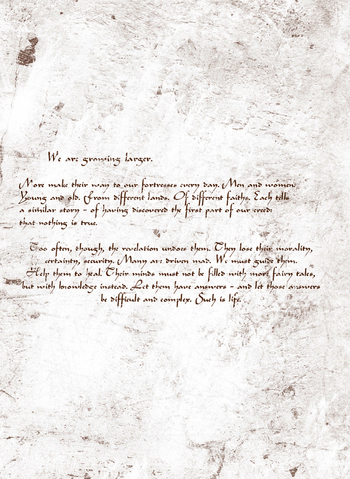 We are growing larger.
More make their way to our fortresses every day. Men and women.
Young and old. From different lands. Of different faiths. Each tells
a similar story - of having discovered the first part of our creed:
that nothing is true.
Too often, though, the revelation undoes them. They lose their morality,
certainty, security. Many are driven mad. We must guide them.
Help them to heal. Their minds must not be filled with more fairy tales,
but with knowledge instead. Let them have answers - and let those answers
be difficult and complex. Such is life.